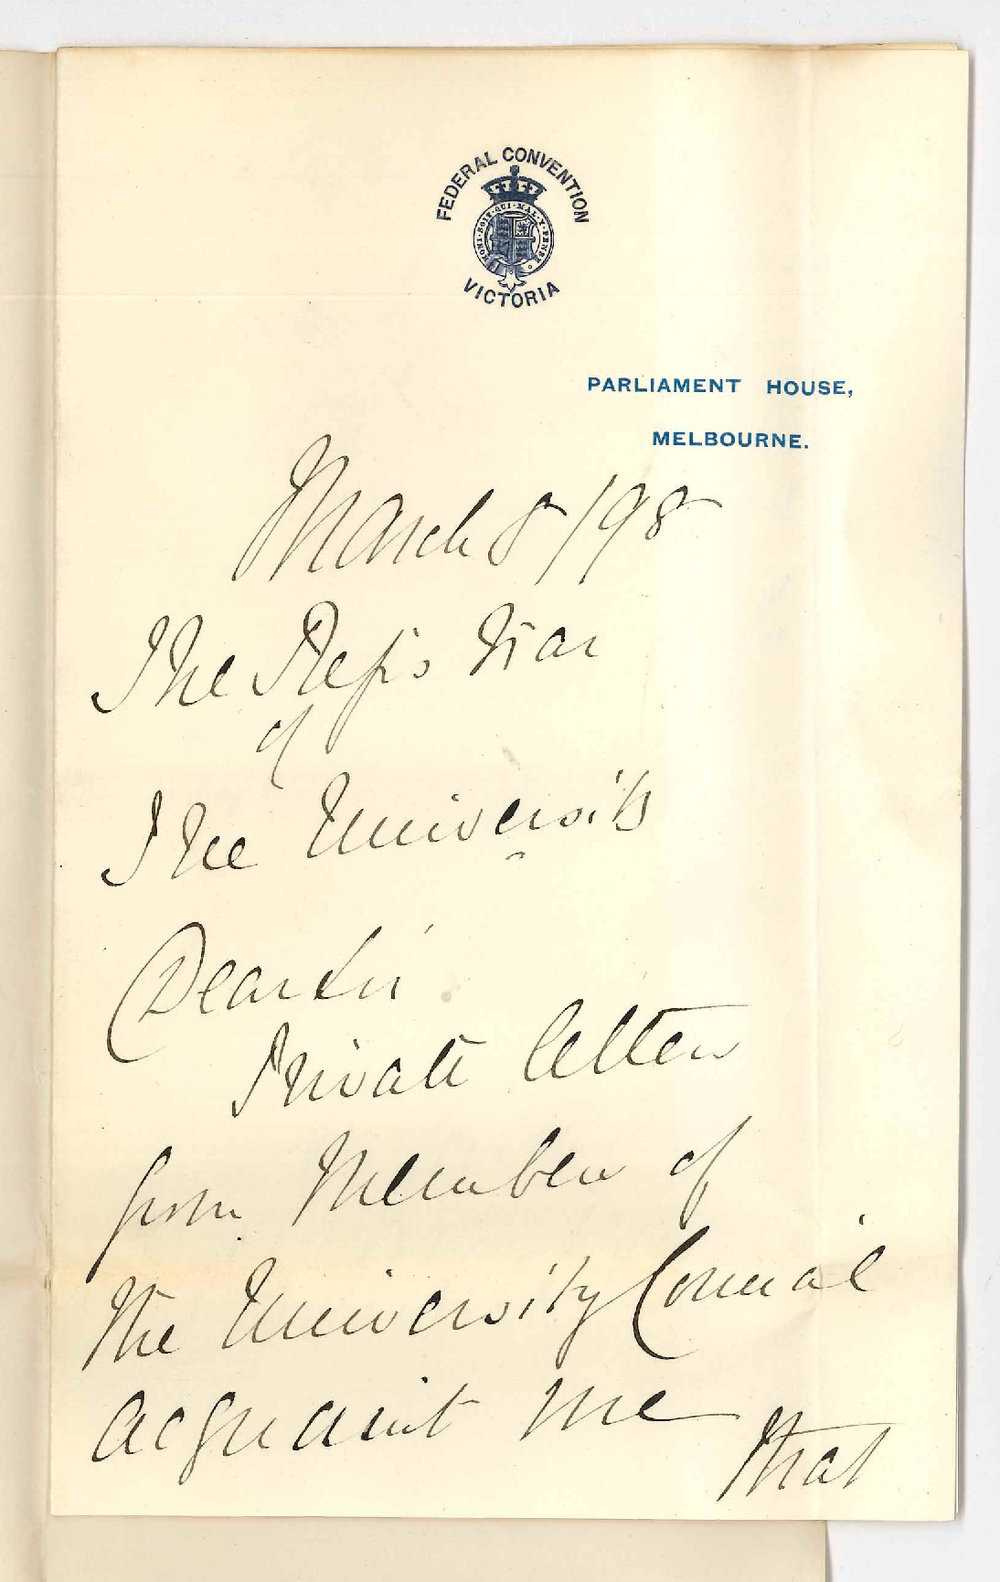 FEDERAL CONVENTION
HONI·SOIT·QUI·MAL·Y·PENSE
VICTORIA
PARLIAMENT HOUSE,
MELBOURNE.
March 8/98
The Registrar
of
The University
Dear Sir
Private letters
from Members of
the University Council
acquaint me
that